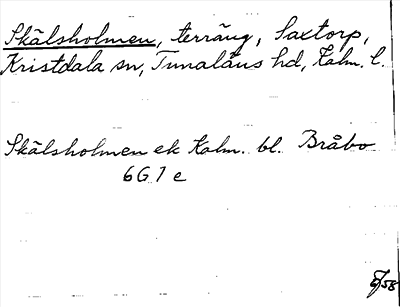 Skälsholmen, terräng, Saxtorp,
Kristdala sn, Tunaläns hd, Kalm. l.
Skälsholmen ek Kalm. bl. Bråbo
6G 7 e
6/58